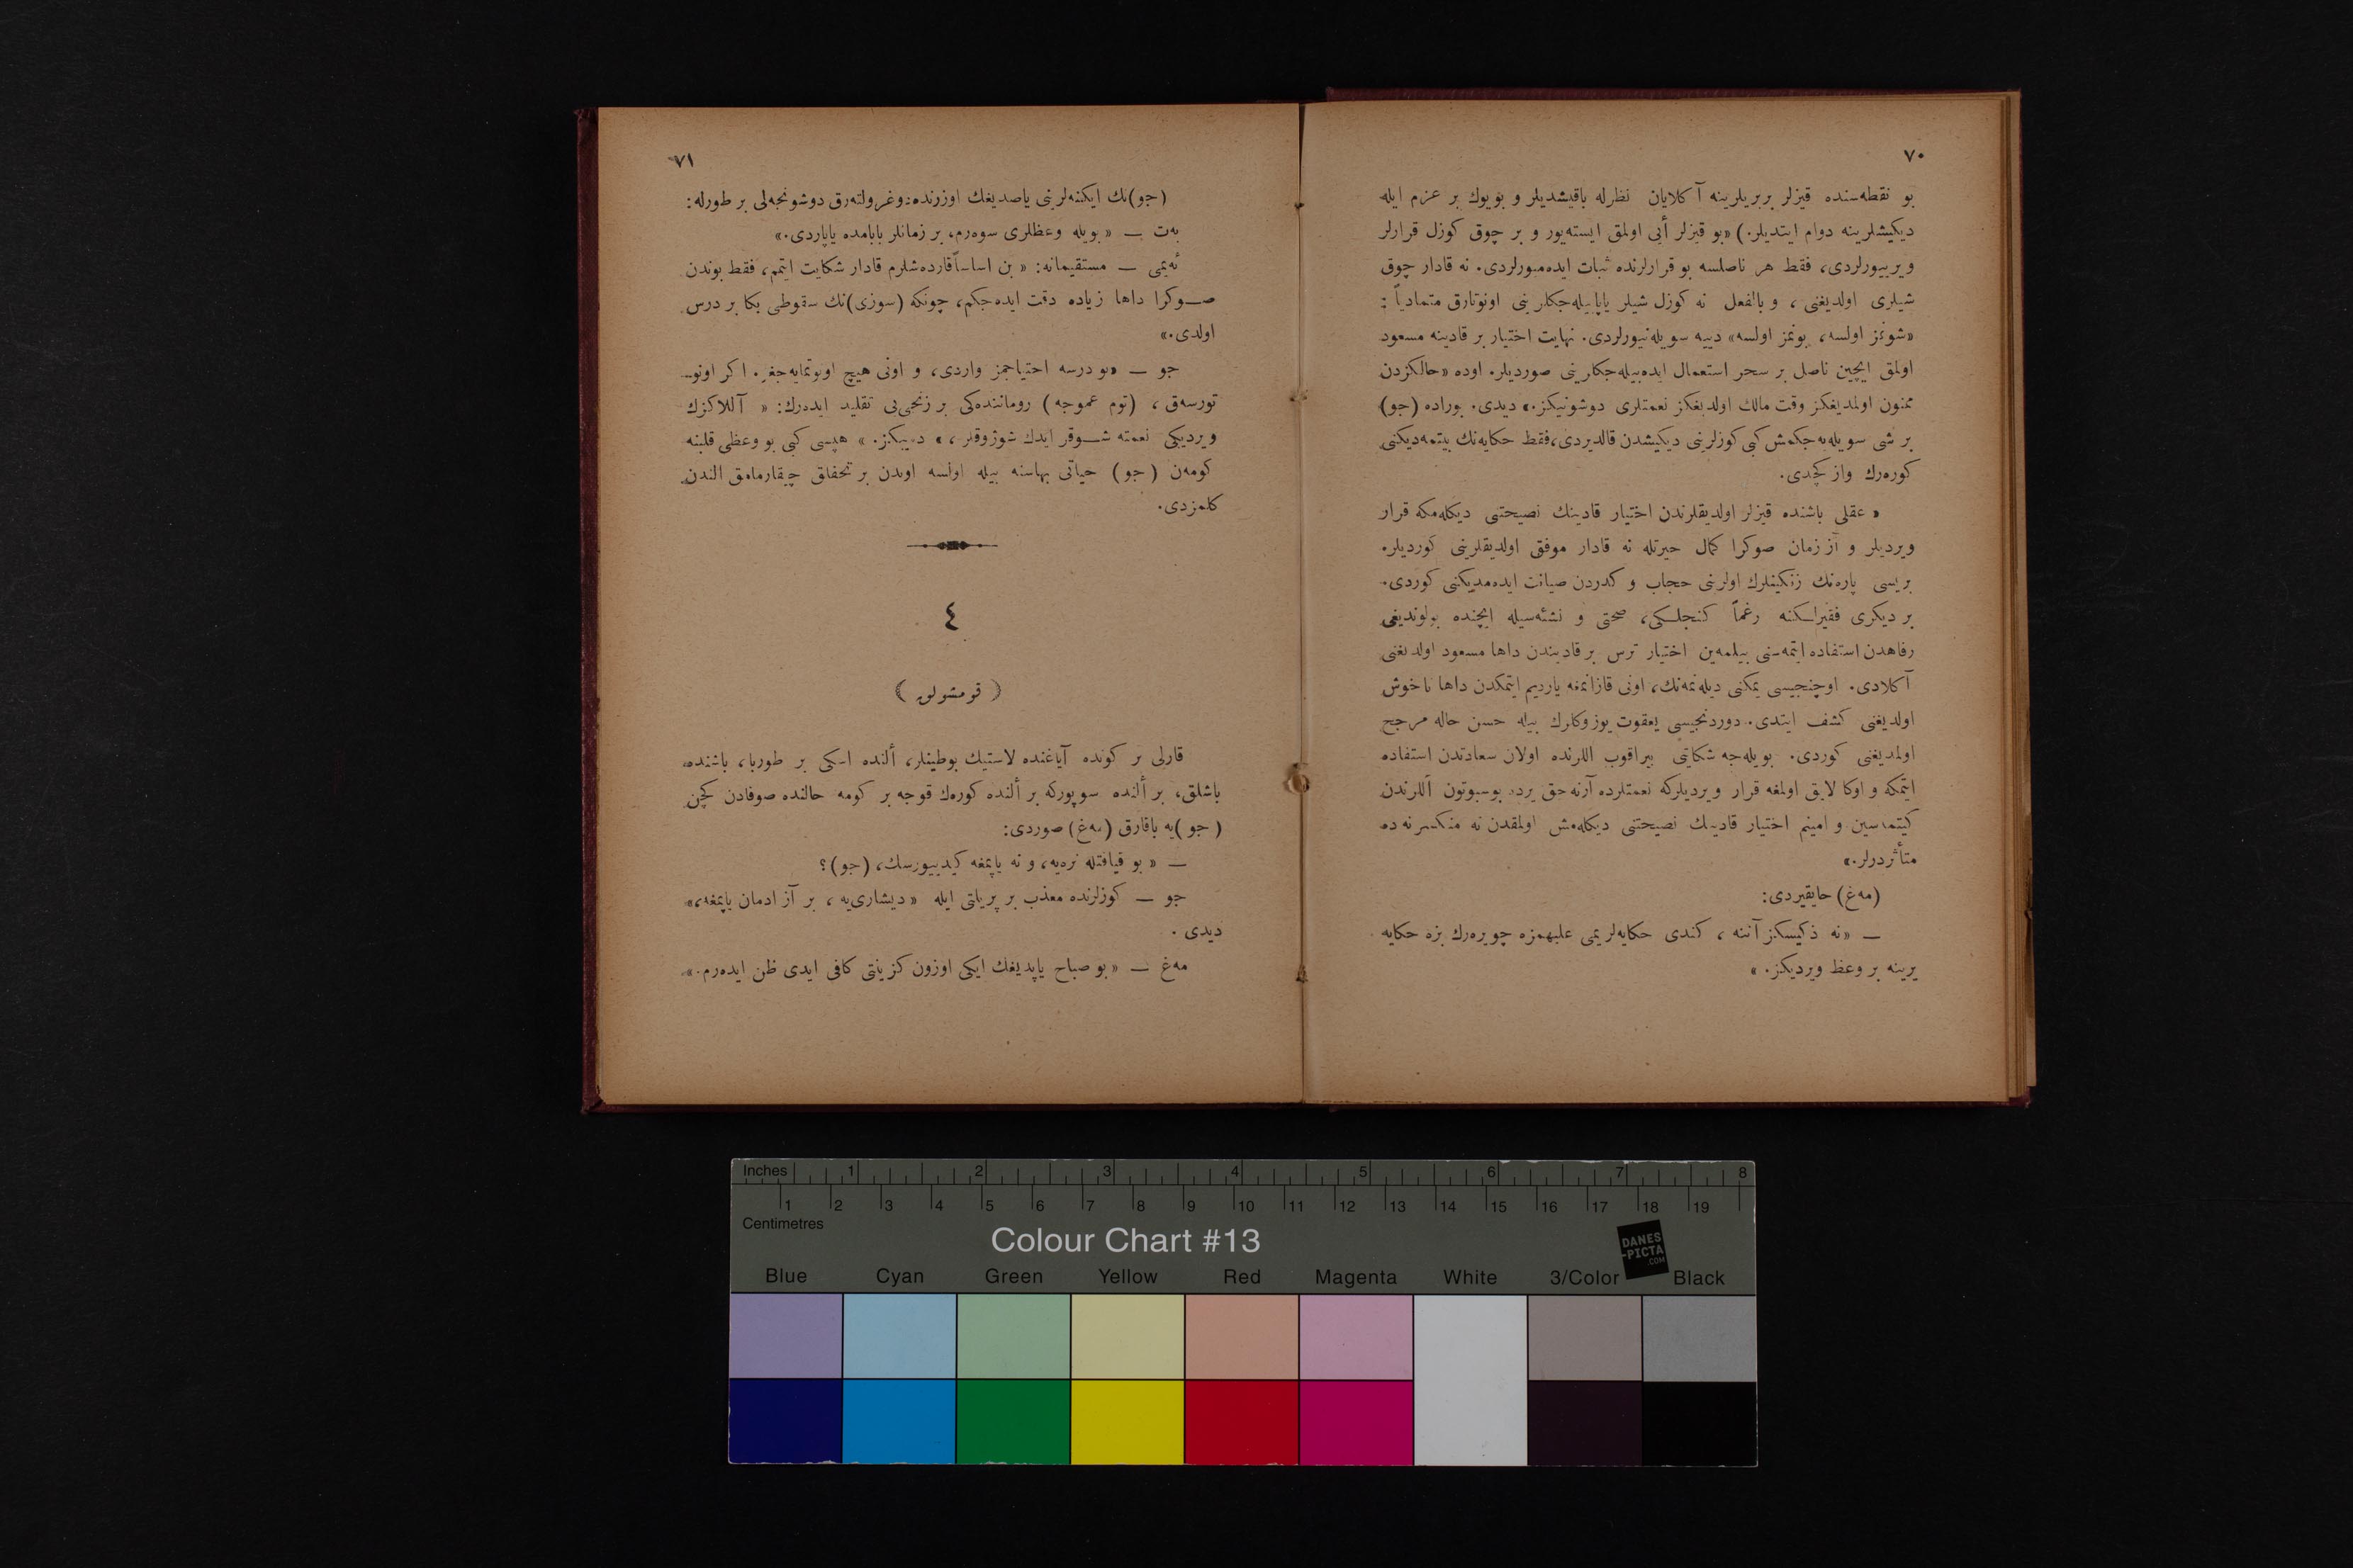 ٧٠
بو نقطه‌سنده قیزلر بربریلرینه آكلایان نظرله باقیشدیلر و بویوك بر عزم ایله
دیكیشلرینه دوام ایتدیلر.) «بو قیزلر أیی اولمق ایسته‌یور و بر چوق كوزل قرارلر
ویریبورلردی، فقط هر ناصلسه بو قرارلرنده ثبات ایده‌میورلردی. نه قادار چوق
شیلری اولدیغنی ، و بالفعل نه كوزل شیلر یاپابیله‌جكلرینی اونوتارق متمادیاً :
«شونمز اولسه، بونمز اولسه» دییه سویله‌نیورلردی. نهایت اختیار بر قادینه مسعود
اولمق ایچین ناصل بر سحر استعمال ایده‌بیله‌جكلرینی صوردیلر. اوده «حالكزدن
ممنون اولمدیغكز وقت مالك اولدیغكز نعمتلری دوشونیكز.» دیدی. بوراده (جو)
بر شی سویله‌یه‌جكمش كبی كوزلرینی دیكیشدن قالدیردی،فقط حكایه‌نك بیتمه‌دیكنی
كوره‌رك واز كچدی.
« عقلی باشنده قیزلر اولدیقلرندن اختیار قادینك نصیحتنی دیكله‌مكه قرار
ویردیلر و آز زمان صوكرا كمال حیرتله نه قادار موفق اولدیقلرینی كوردیلر.
بریسی پاره‌نك زنكینلرك اولرینی حجاب و كدردن صیانت ایده‌مدیكنی كوردی.
بر دیكری فقیرلكنه رغماً كنجلكی، صحتی و نشئه‌سیله ایچنده بولوندیغی
رفاهدن استفاده ایتمه‌سنی بیلمه‌ین اختیار ترس بر قادیندن داها مسعود اولدیغنی
آكلادی. اوچنجیسی یمكنی دیله‌نمه‌نك، اونی قازانمغه یاردیم ایتمكدن داها ناخوش
اولدیغنی كشف ایتدی. دوردنجیسی یعقوت یوزوكلرك بیله حسن حاله مرجح
اولمدیغنی كوردی. بویله‌جه شكایتی بیراقوب اللرنده اولان سعادتدن استفاده
ایتمكه و اوكا لایق اولمغه قرار ویردیلركه نعمتلرده آرته‌جق یرده بوسبوتون أللرندن
كیتمه‌سین و امینم اختیار قادینك نصیحتنی دیكله‌مش اولمقدن نه منكسر نه ده
متأثردرلر.»
(مه‌غ) حایقیردی:
— «نه ذكیسكز آننه ، كندی حكایه‌لریمی علیهمزه چویره‌رك بزه حكایه
یرینه بر وعظ ویردیكز. »
٧١
(جو)نك ایكنه‌لرینی یاصدیغك اوزرنده دوغرولته‌رق دوشونجه‌لی بر طورله:
به‌ت — « بویله وعظلری سوه‌رم، بر زمانلر بابامده یاپاردی.»
ئه‌یمی — مستقیمانه: « بن اساساً قارده‌شلرم قادار شكایت ایتمم، فقط بوندن
صوكرا داها زیاده دقت ایده‌جكم، چونكه (سوزی)نك سقوطی بكا بر درس
اولدی.»
جو — «بو درسه احتیاجمز واردی، و اونی هیچ اونوتمایه‌جغز. اكر اونو-
تورسه‌ق ، (توم عموجه) روماننده‌كی بر زنجی‌یی تقلید ایده‌رك: « آللاكزك
ویردیكی نعمته شوقر ایدك شوژوقلر ، » دییكز. » هپسی كبی بو وعظی قلبنه
كومه‌ن (جو) حیاتی بهاسنه بیله اولسه اوندن بر تحفلق چیقارمامق الندن
كلمزدی.
٤
( قومشولق )
قارلی بر كونده آیاغنده لاستیك بوطینلر، ألنده اسكی بر طوربا، باشنده
باشلق، بر ألنده سوپوركه بر ألنده كوره‌ك قوجه بر كومه حالنده صوفادن كچن
( جو )یه باقارق (مه‌غ) صوردی:
— « بو قیافتله نره‌یه، و نه یاپمغه كیدییورسك، (جو)؟
جو — كوزلرنده معذب بر پریلتی ایله « دیشاری‌یه ، بر آز ادمان یاپمغه،»
دیدی .
مه‌غ — « بو صباح یاپدیغك ایكی اوزون كزینتی كافی ایدی ظن ایده‌رم.»
Inches 1 2 3 4 5 6 7 8
1 2 3 4 5 6 7 8 9 10 11 12 13 14 15 16 17 18 19
Centimetres
Colour Chart #13
DANES
-PICTA
.COM
Blue Cyan Green Yellow Red Magenta White 3/Color Black